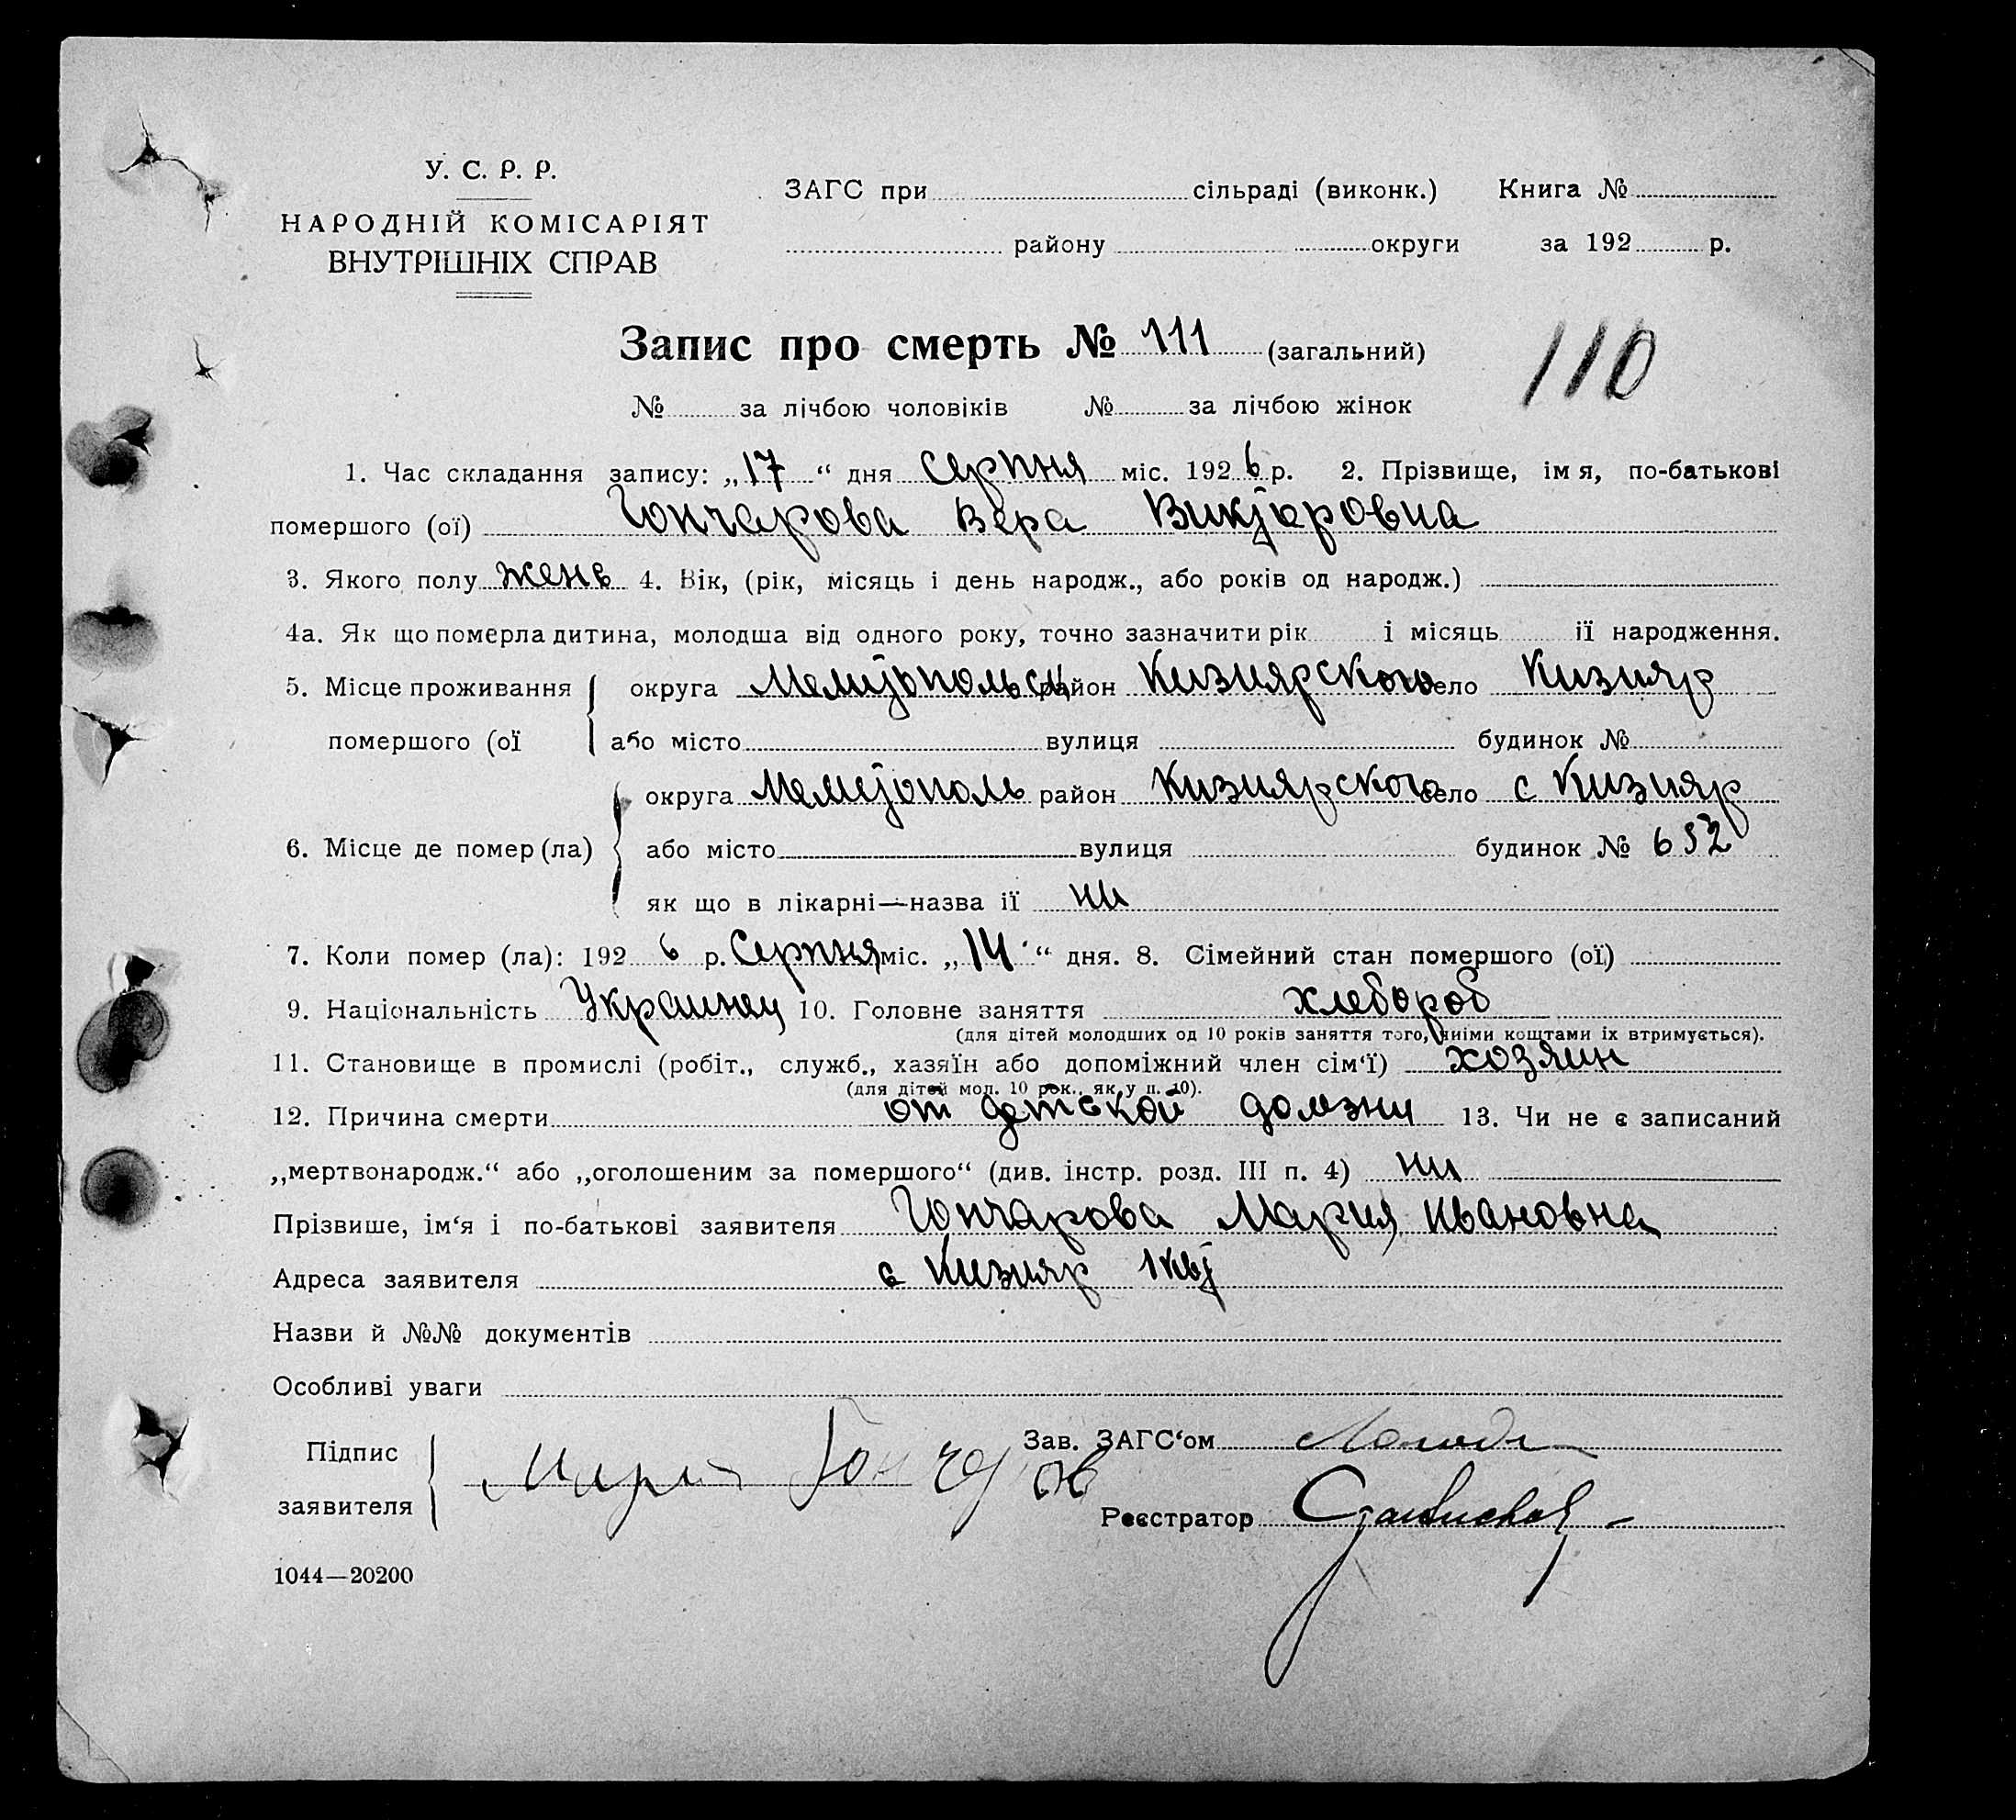 У. С. Р. Р.
НАРОДНІЙ КОМІСАРІЯТ
ВНУТРІШНІХ СПРАВ
ЗАГС при сільраді (виконк.) Книга №
району округи за 192 р.
Запис про смерть № 111 (загальний)
110
№ за лічбою чоловіків № за лічбою жінок
1. Час складання запису: „17“ дня Серпня міс. 1926 р. 2. Прізвище, імя, по-батькові
помершого (ої) Гончарова Вера Викторовна
3. Якого полу жень 4. Вік, (рік, місяць і день народж., або років од народж.)
4а. Як що померла дитина, молодша від одного року, точно зазначити рік і місяць її народження.
5. Місце проживання округа Мелитопольск район Кизиярского село Кизияр
помершого (ої або місто вулиця будинок №
округа Мелитополь район Кизиярского село с Кизияр
6. Місце де помер (ла) або місто вулиця будинок № 652
як що в лікарні—назва її ни
7. Коли помер (ла): 1926 р. Серпня міс. „14“ дня. 8. Сімейний стан помершого (ої)
9. Національність Украинец 10. Головне заняття хлебороб
(для дітей молодших од 10 років заняття того, чиїми коштами їх втримується).
11. Становище в промислі (робіт., служб., хазяїн або допоміжний член сім‘ї) хозяин
(для дітей мол. 10 рок., як у п. 10).
12. Причина смерти от детской 13. Чи не є записаний
„мертвонародж.“ або „оголошеним за помершого“ (див. інстр. розд. III п. 4) ни
Прізвише, ім‘я і по-батькові заявителя Гончарова Мария Ивановна
Адреса заявителя с Кизияр 1
Назви й №№ документів
Особливі уваги
Підпис Зав. ЗАГС‘ом
заявителя Мария Гончаров
Реєстратор
1044—20200